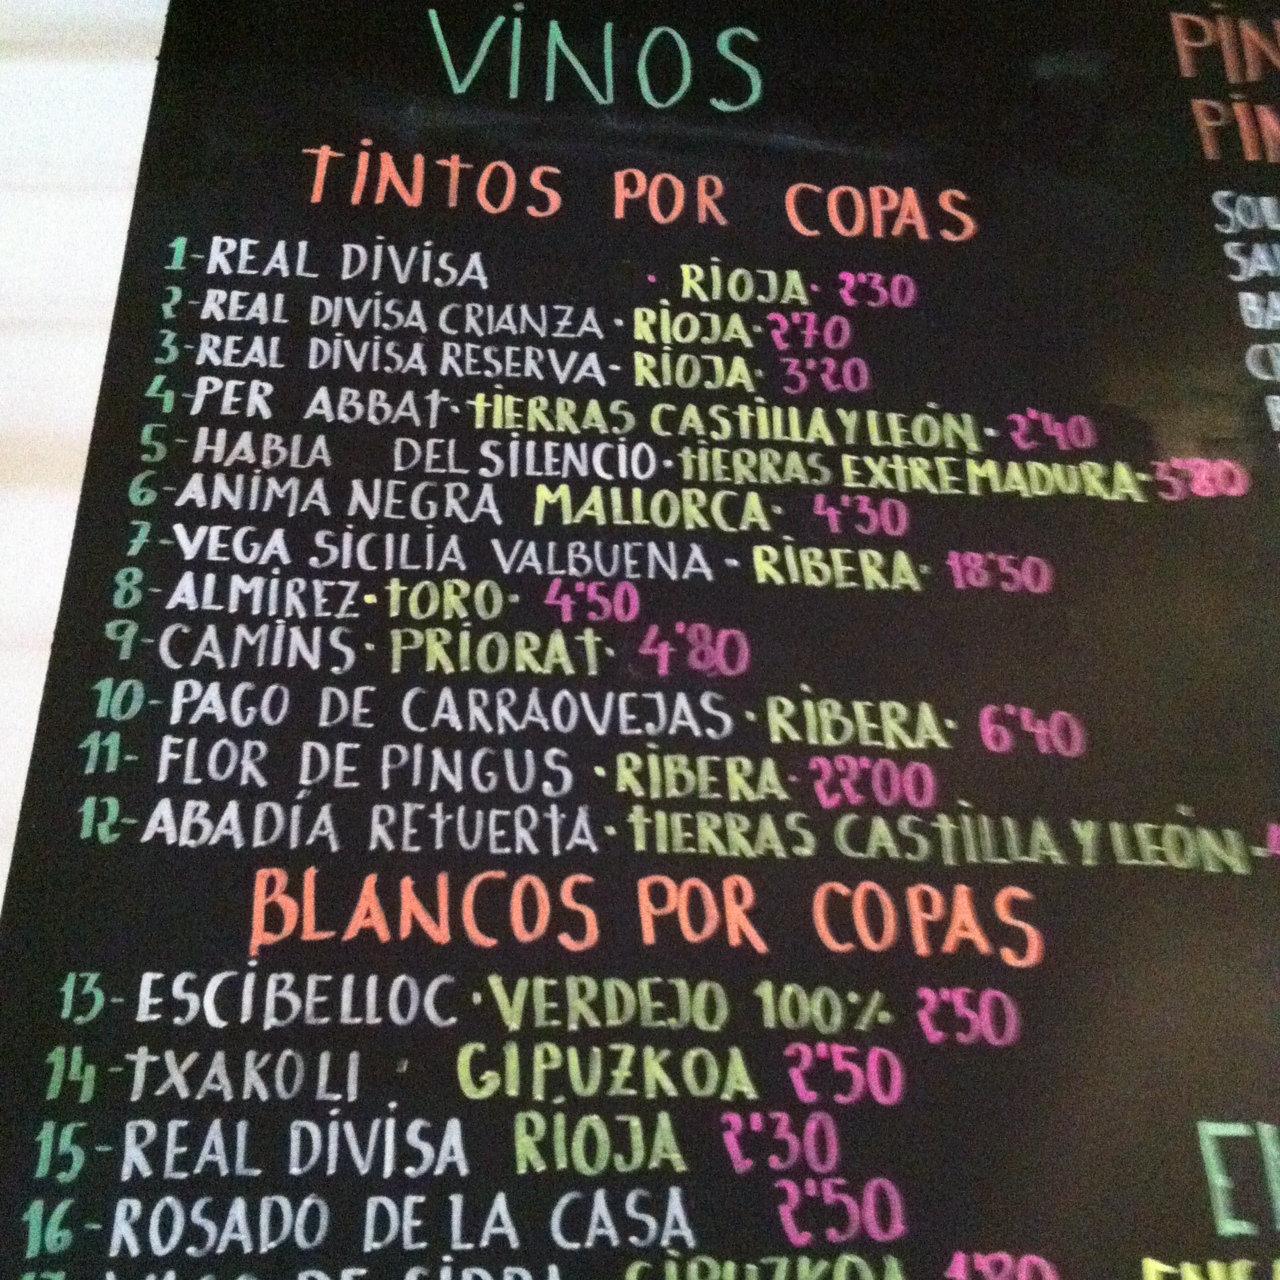 VINOS
TINTOS POR COPAS
1-REAL DIVISA · RIOJA· 2'30
2-REAL DIVISA CRIANZA·RIOJA·2'70
3-REAL DIVISA RESERVA-RIOJA· 3'20
4-PER ABBAT·TIERRAS CASTILLA Y LEÓN- 2'40
5-HABLA DEL SILENCIO·TIERRAS EXTREMADURA-3'80
6-ANIMA NEGRA MALLORCA· 4'30
7-VEGA SICILIA VALBUENA-RIBERA· 18'50
8-ALMIREZ·TORO· 4'50
9-CAMINS·PRIORAT· 4'80
10-PAGO DE CARRAOVEJAS·RIBERA· 6'40
11-FLOR DE PINGUS·RIBERA·22'00
12-ABADÍA RETUERTA·TIERRAS CASTILLA Y LEÓN-
BLANCOS POR COPAS
13-ESCIBELLOC·VERDEJO 100% 2'50
14-TXAKOLI · GIPUZKOA 2'50
15-REAL DIVISA RIOJA 2'30
16-ROSADO DE LA CASA 2'50
GIPUZKOA 1'80
PIN
PIN
SOL
SAL
BA